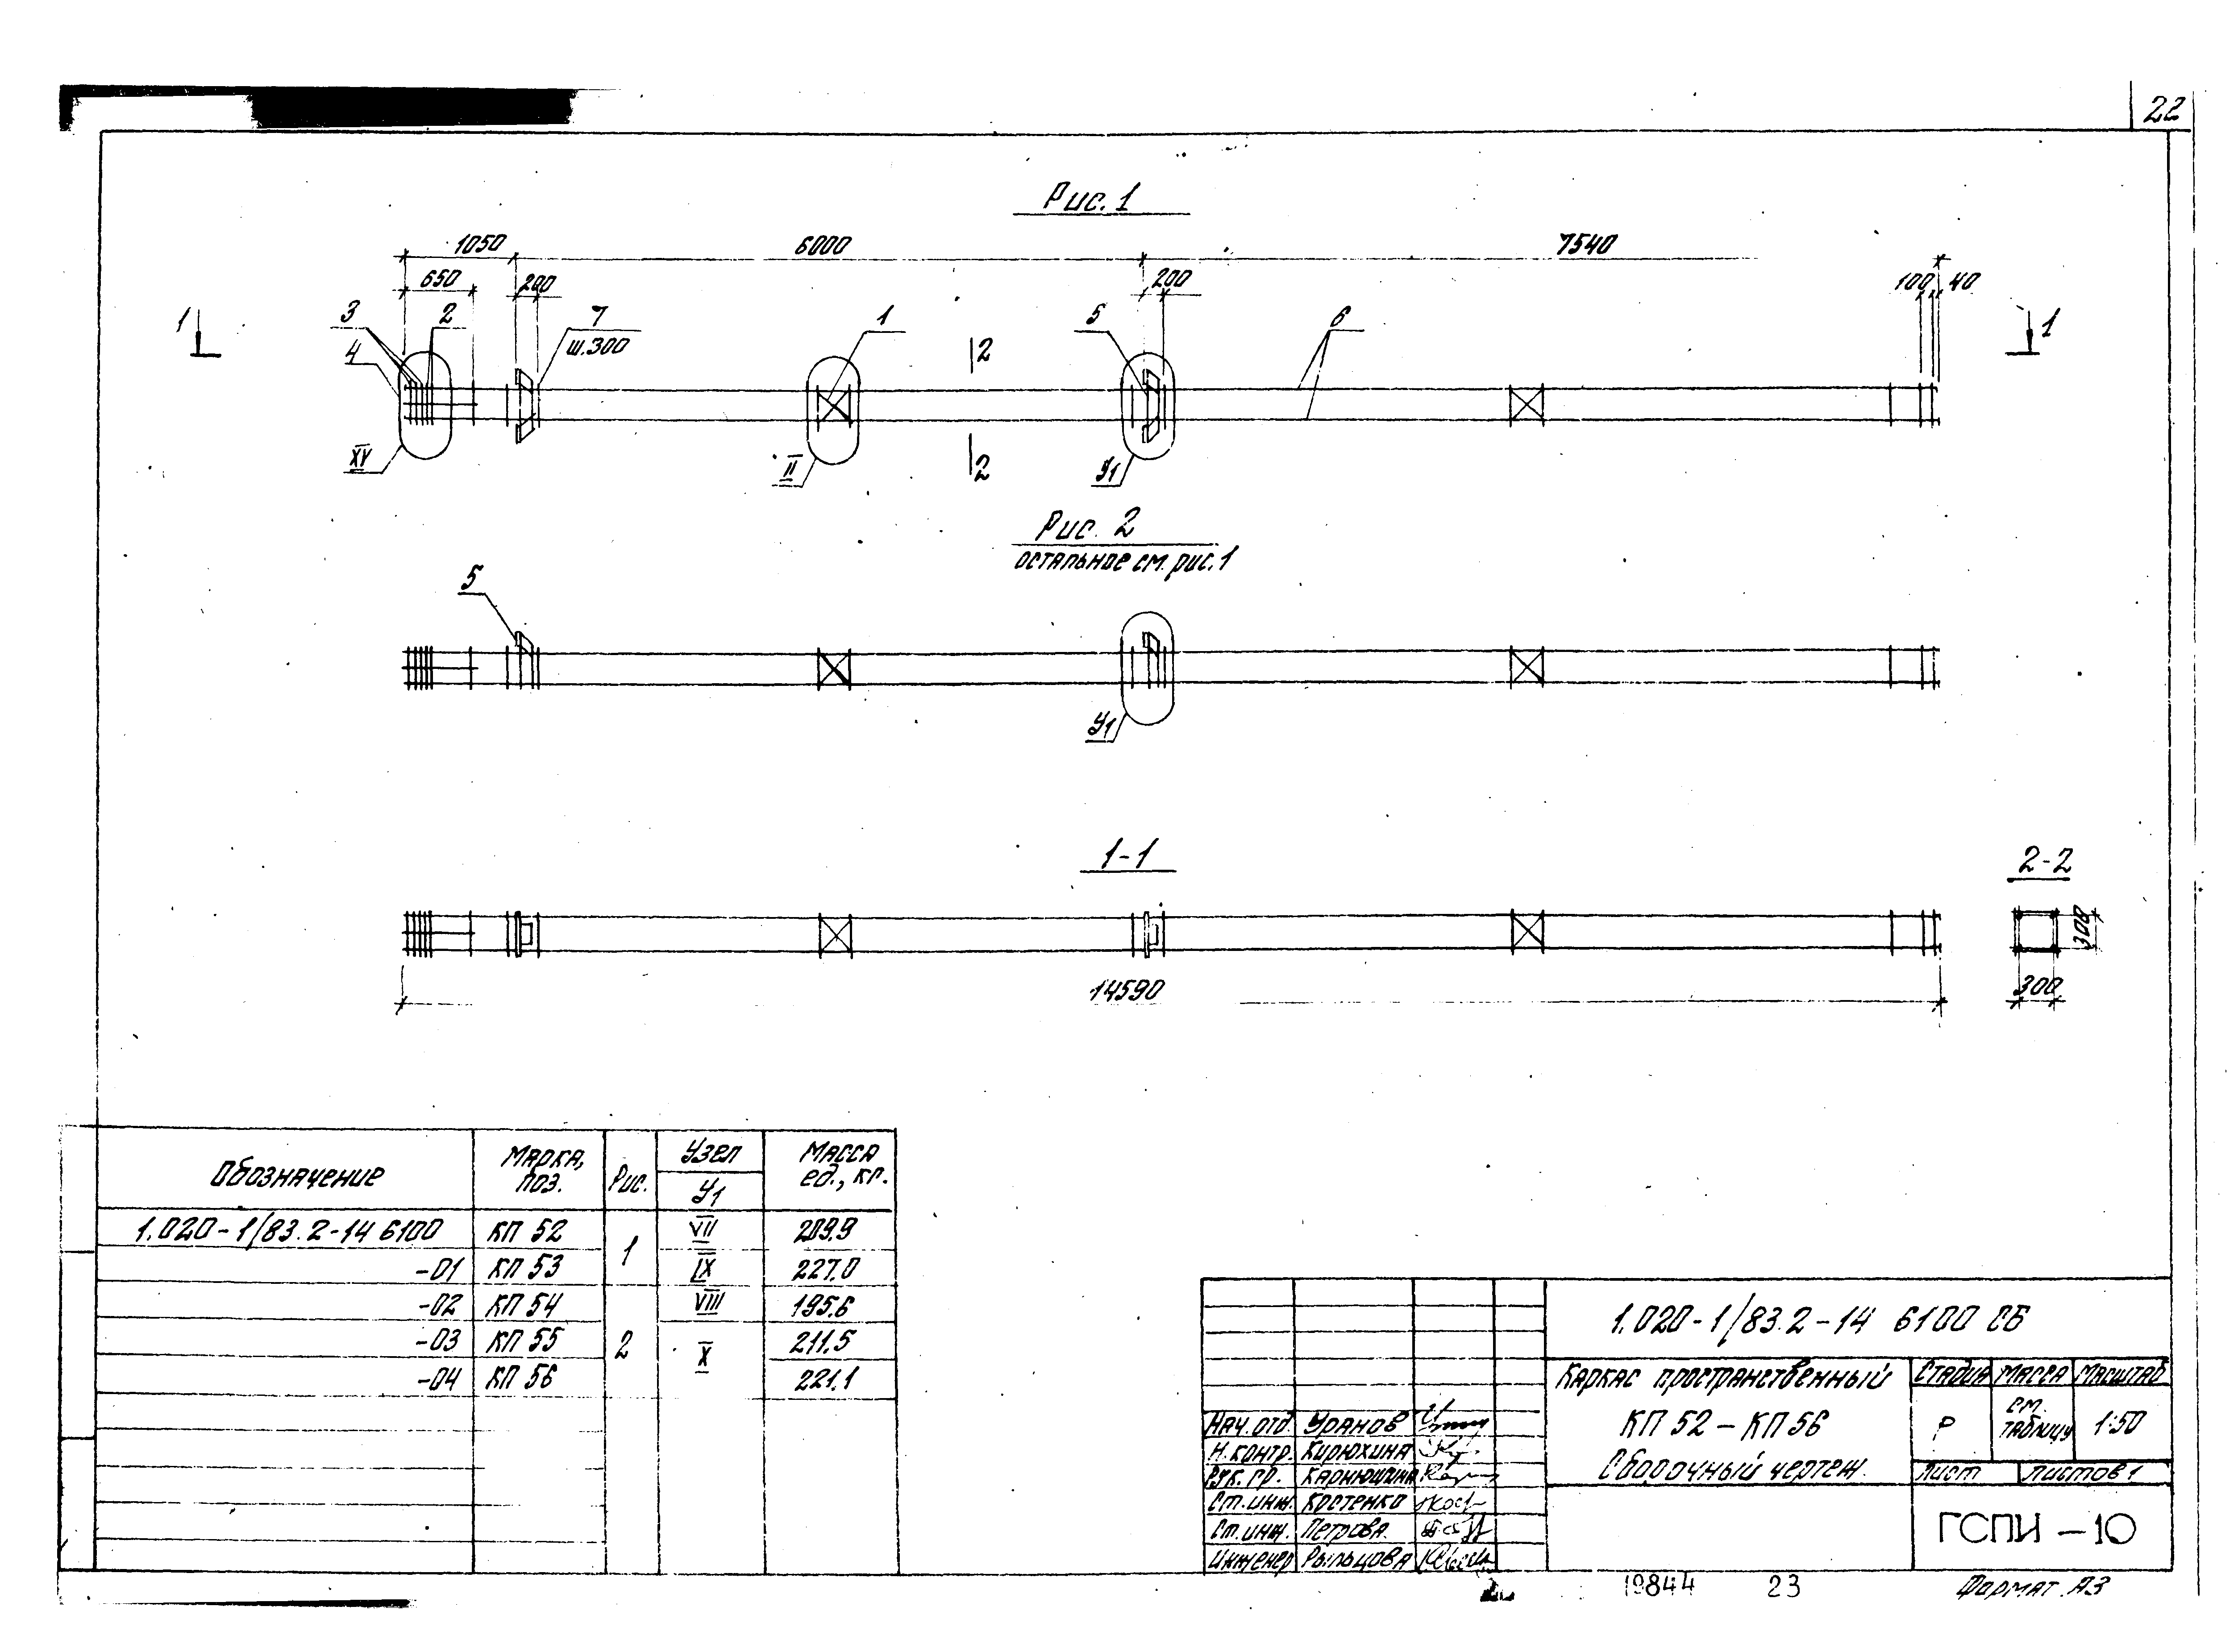 22
Рис. 1
1050 6000 7540
650 200 200 100 40
1 3 2 7 1 5 6 1
4 ш.300 2
XV II 2 У1
Рис. 2
остальное см. рис. 1
5
У1
1-1
2-2
300
14590 300
Обозначение Марка, поз. Рис. Узел Масса ед., кг.
У1
1.020-1/83.2-14 6100 КП 52 1 VII 209.9
-01 КП 53 IX 227.0
-02 КП 54 2 VIII 195.6
-03 КП 55 X 211.5
-04 КП 56 221.1
1.020-1/83.2-14 6100 СБ
Каркас пространственный
КП 52 - КП 56
Сборочный чертеж
Стадия Масса Масштаб
Р см. таблицу 1:50
Лист Листов 1
ГСПИ-10
Нач. отд. Уранов
Н. контр. Кирюхина
Рук. гр. Карнюшина
Ст. инж. Костенко
Ст. инж. Петрова
Инженер Рыльцова
19844 23 Формат А3